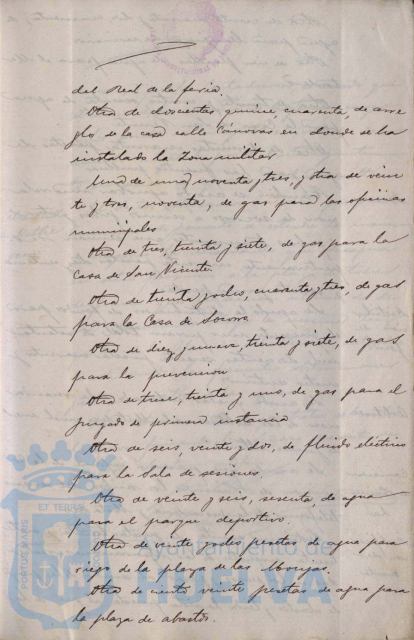 del Real de la feria.
Otra de doscientas quince, cuarenta, de arre
glo de la casa calle Cánovas en donde se ha
instalado la Zona militar
Una de una, noventa y tres, y otra de vein
te y tres, noventa, de gas para las oficinas
municipales
Otra de tres, treinta y siete, de gas para la
Casa de San Vicente.
Otra de treinta y ocho, cuarenta y tres, de gas
para la Casa de Socorro
Otra de diez y nueve, treinta y siete, de gas
para la prevencion
Otra de trece, treinta y uno, de gas para el
Juzgado de primera instancia
Otra de seis, veinte y dos, de fluido eléctrico
para la Sala de sesiones.
Otra de veinte y seis, sesenta, de agua
para el parque deportivo.
Otra de veinte y ocho pesetas de agua para
riego de la plaza de las Monjas.
Otra de ciento veinte pesetas de agua para
la plaza de abastos.
PORTUS MARIS
ET TERRAE
Ayuntamiento de
HUELVA